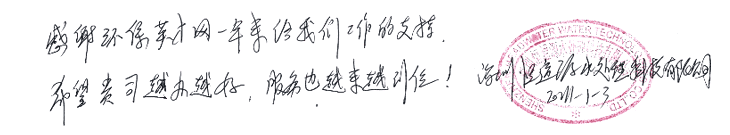 感谢环保英才网一年来给我们工作的支持.
希望贵司越办越好,服务也越来越到位!
深圳 水处理科技有限公司
2011-1-3
WATER TECHNOLOGY
CO LTD
SHENZHEN